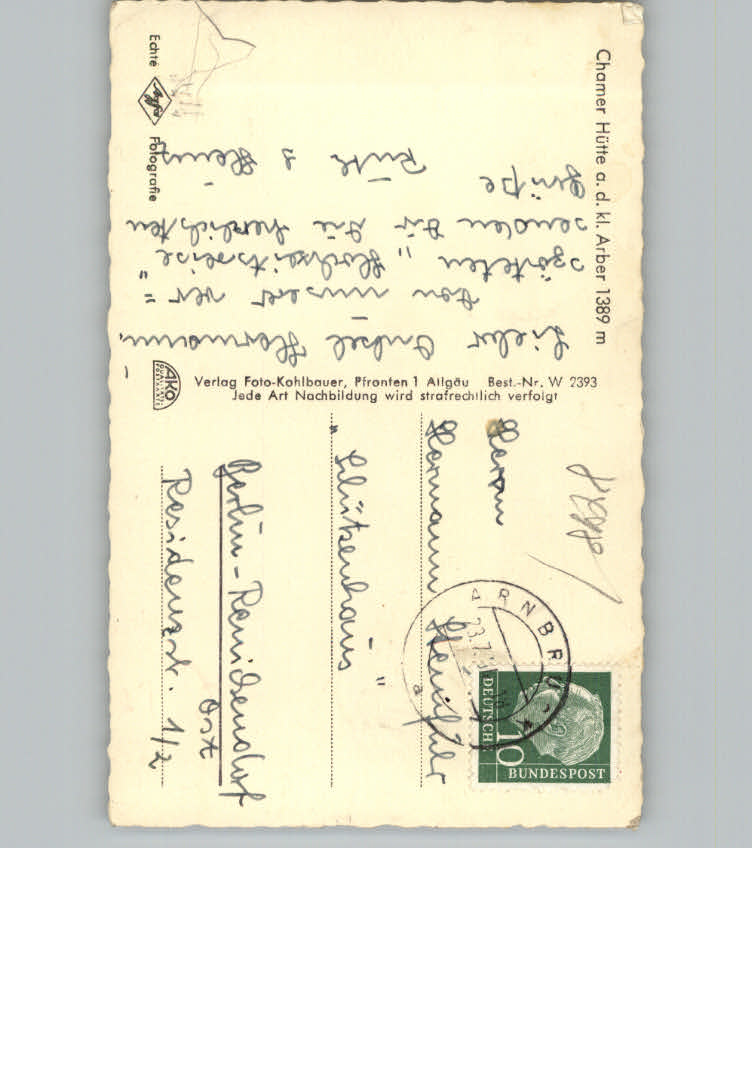 Chamer Hütte a. d. kl. Arber 1389 m
Lieber Onkel Hermann,
von unserer "ver=
späteten" Hochzeitsreise
senden wir die herzlichsten
Grüße
Ruth & Heinz
Echte Agfa Fotografie
AKO
QUALITÄTS
POSTKARTE
Verlag Foto-Kohlbauer, Pfronten 1 Allgäu Best.-Nr. W 2393
Jede Art Nachbildung wird strafrechtlich verfolgt
ARNBRUCK
23.7.
10
DEUTSCHE
BUNDESPOST
Herrn
Hermann
"Schützenhaus"
Berlin-Reinickendorf
Ost
Residenzstr. 1/2